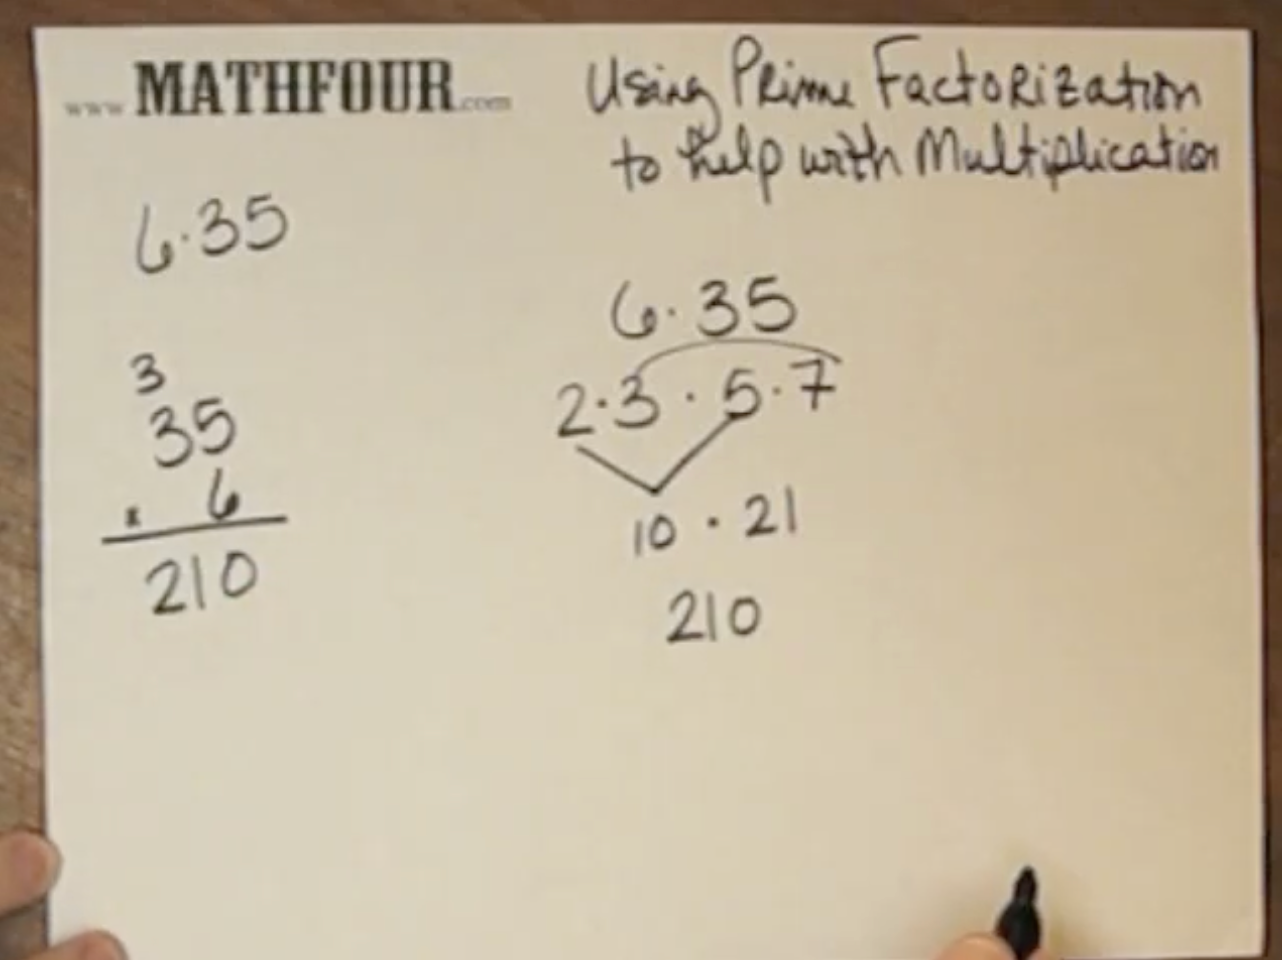 www.MATHFOUR.com
Using Prime Factorization
to help with Multiplication
6·35
3
35
x 6
210
6·35
2·3·5·7
10·21
210